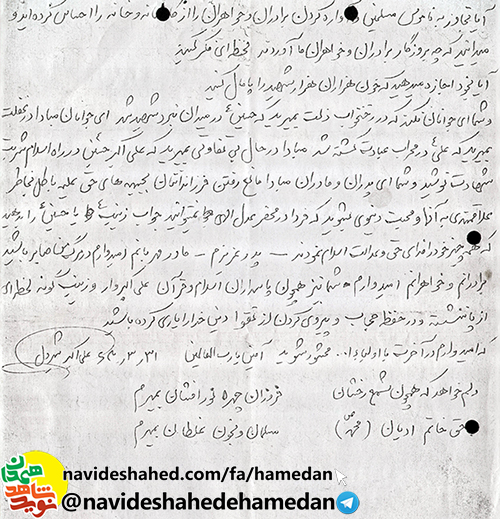 آیا تجاوز به ناموس مسلمین و آواره کردن برادران و خواهران را از کاشانه و خانه را احساس کرده‌اید و
میدانید که چه بروزگار برادران و خواهران ما آوردند لحظه‌ای فکر کنید
آیا بخود اجازه میدهید که خون هزاران هزار شهید را پامال کنند
و شما ای جوانان نکند که در رختخواب ذلت بمیرید که حسین در میدان نبرد شهید شد ای جوانان مبادا در غفلت
بمیرید که علی در محراب عبادت کشته شد مبادا در حال بی تفاوتی بمیرید که علی اکبر حسین در راه اسلام شربت
شهادت نوشید و شما ای پدران و مادران مبادا مانع رفتن فرزندانتان بجبهه های حق علیه باطل بخاطر
علاقمندی به آنها و محبت دنیوی بشوید که فردا در محضر عدل الهی نمیتوانید جواب زینب یا حسین را بدهید
که همه چیز خود را فدای حق و عدالت اسلام نمودند – پدر عزیزم – مادر مهربانم امیدوارم در مرگ من صابر باشید
برادرانم و خواهرانم امیدوارم شما نیز همچون پاسداران اسلام و قرآن علی اکبروار و زینب گونه لحظه‌ای
از پا ننشسته و در حفظ حجاب و پیروی کردن از تقوا دین خدا را یاری کرده باشید
که امیدوارم در آخرت با اولیاء ا... محشور شوید آمین یارب العالمین ۳۱ ر ۳ ر علی اکبر
دلم خواهد که همچون شمع رخشان فروزان چهره نورافشان بمیرم
بحق خاتم ادیان (محمد ص) بسامان و بخون غلطان بمیرم
نوید شاهد همدان
navideshahed.com/fa/hamedan
@navideshahedehamedan